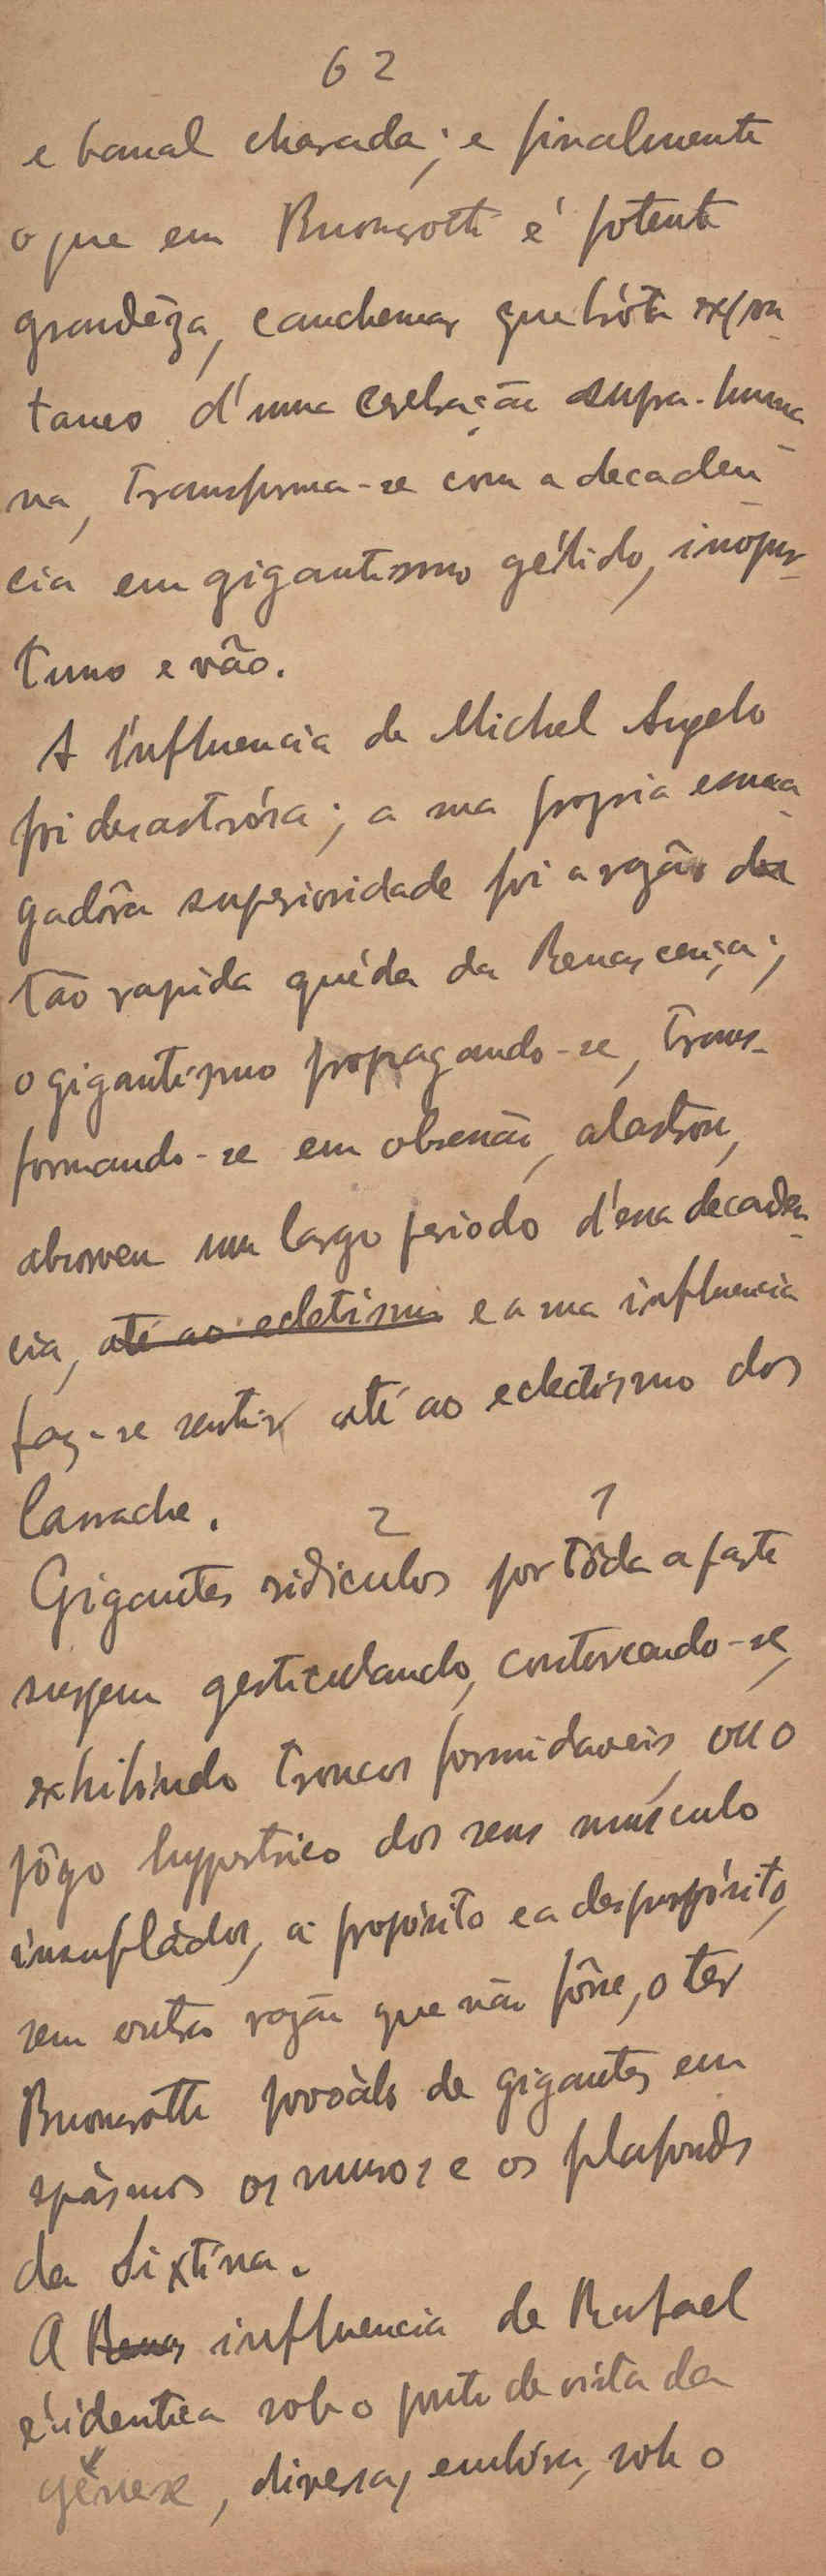 62
e banal charada; e finalmente
o que em Buonarotti é potente
grandêza, cauchemar que bróta expon-
taneo d'uma cerebração supra-huma-
na, transforma-se com a decaden-
cia em gigantismo gélido, inopor-
tuno e vão.
A influencia de Michel Angelo
foi desastrósa; a sua propria esma-
gadôra superioridade foi a razão da
tão rapida quéda da Renascença;
o gigantismo propagando-se, trans-
formando-se em obsessão, alastrou,
absorveu um largo periodo d'essa decaden-
cia, até ao ecletismo e a sua influencia
faz-se sentir até ao eclectismo dos
Carrache.
2 1
Gigantes ridiculos por tôda a parte
surgem gesticulando, contorcendo-se,
exhibindo troncos formidaveis, ou o
jôgo hypertrico dos seus músculo
insufládos, a propósito e a desproposito,
sem outra razão que não fôsse, o ter
Buonarotti povoádo de gigantes em
spásmos os muros e os plafonds
da Sixtina.
A Renas influencia de Rafael
é identica sob o ponto de vista da
gênese, diversa, embóra, sob o